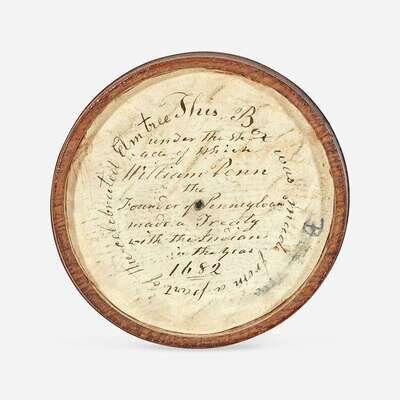 This B
was made
from a part of
the celebrated Elm tree
under the
of which
William Penn
the
Founder of Pennsylvan
made a Treaty
with the Indians
in the Year
1682